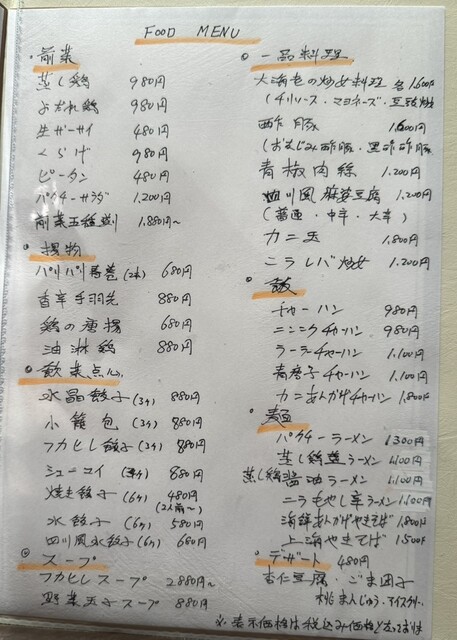 FOOD MENU
・前菜
蒸し鶏 980円
よだれ鶏 980円
生ザーサイ 480円
くらげ 980円
ピータン 480円
パクチーサラダ 1,200円
前菜五種盛り 1,880円〜
・揚物
パリパリ春巻(2本) 680円
香辛手羽先 880円
鶏の唐揚 680円
油淋鶏 880円
飲茶点心
水晶餃子(3ケ) 880円
小籠包(3ケ) 880円
フカヒレ餃子(3ケ) 880円
シューマイ 680円
焼き餃子(6ケ) 480円
(2人前〜)
水餃子(6ケ) 580円
四川風水餃子(6ケ) 680円
スープ
フカヒレスープ 2,880円〜
野菜玉子スープ 880円
一品料理
大海老の炒め料理 各1,600円
(チリソース・マヨネーズ・豆豉炒め
酢豚 1,600円
(おなじみ酢豚・黒酢酢豚
青椒肉絲 1,200円
四川風麻婆豆腐 1,200円
(普通・中辛・大辛)
カニ玉 1,800円
ニラレバ炒め 1,200円
飯
チャーハン 980円
ニンニクチャーハン 980円
ラーラーチャーハン 1,100円
青唐子チャーハン 1,100円
カニあんかけチャーハン 1,800円
麺
パクチーラーメン 1,300円
蒸し鶏塩ラーメン 1,100円
蒸し鶏醤油ラーメン 1,100円
ニラもやし辛ラーメン 1,100円
海鮮あんかけやきそば 1,800円
上海やきそば 1,500円
デザート 480円
杏仁豆腐・ごま団子
桃まんじゅう・アイスクリーム
※表示価格は税込み価格となっております